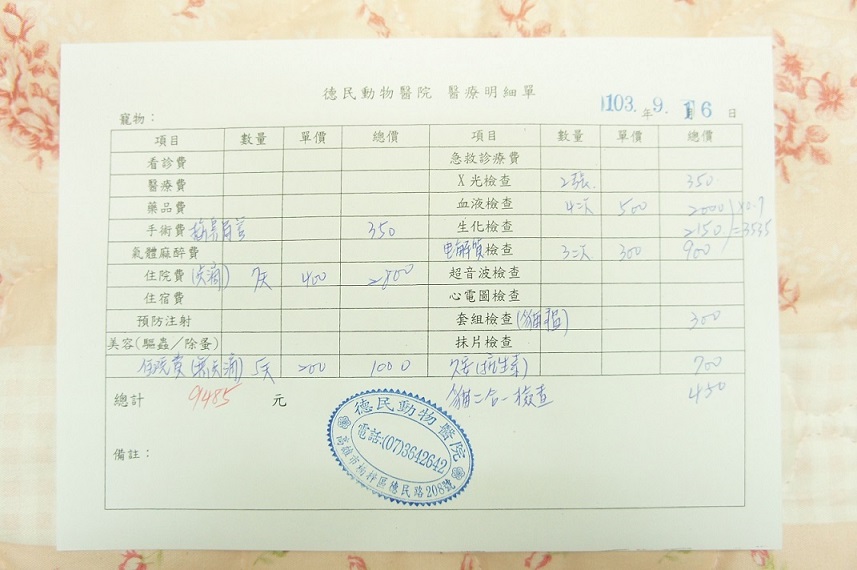 德民動物醫院 醫療明細單
103. 年 9. 16 日
寵物：
項目 數量 單價 總價 項目 數量 單價 總價
看診費 急救診療費
醫療費 X光檢查 2張. 350
藥品費 血液檢查 4次 500 2000 ×0.7
手術費 350 生化檢查 2150 =3535
氣體麻醉費 电解質檢查 3次 300 900
住院費(点滴) 7天 400 2800 超音波檢查
住宿費 心電圖檢查
預防注射 套組檢查(貓瘟) 300
美容(驅蟲／除蚤) 抹片檢查
住院費(無点滴) 5天 200 1000 (抗生素) 700
總計 9485 元 貓二合一檢查 450
備註：
德民動物醫院
電話:(07)3642642
高雄市楠梓區德民路208號